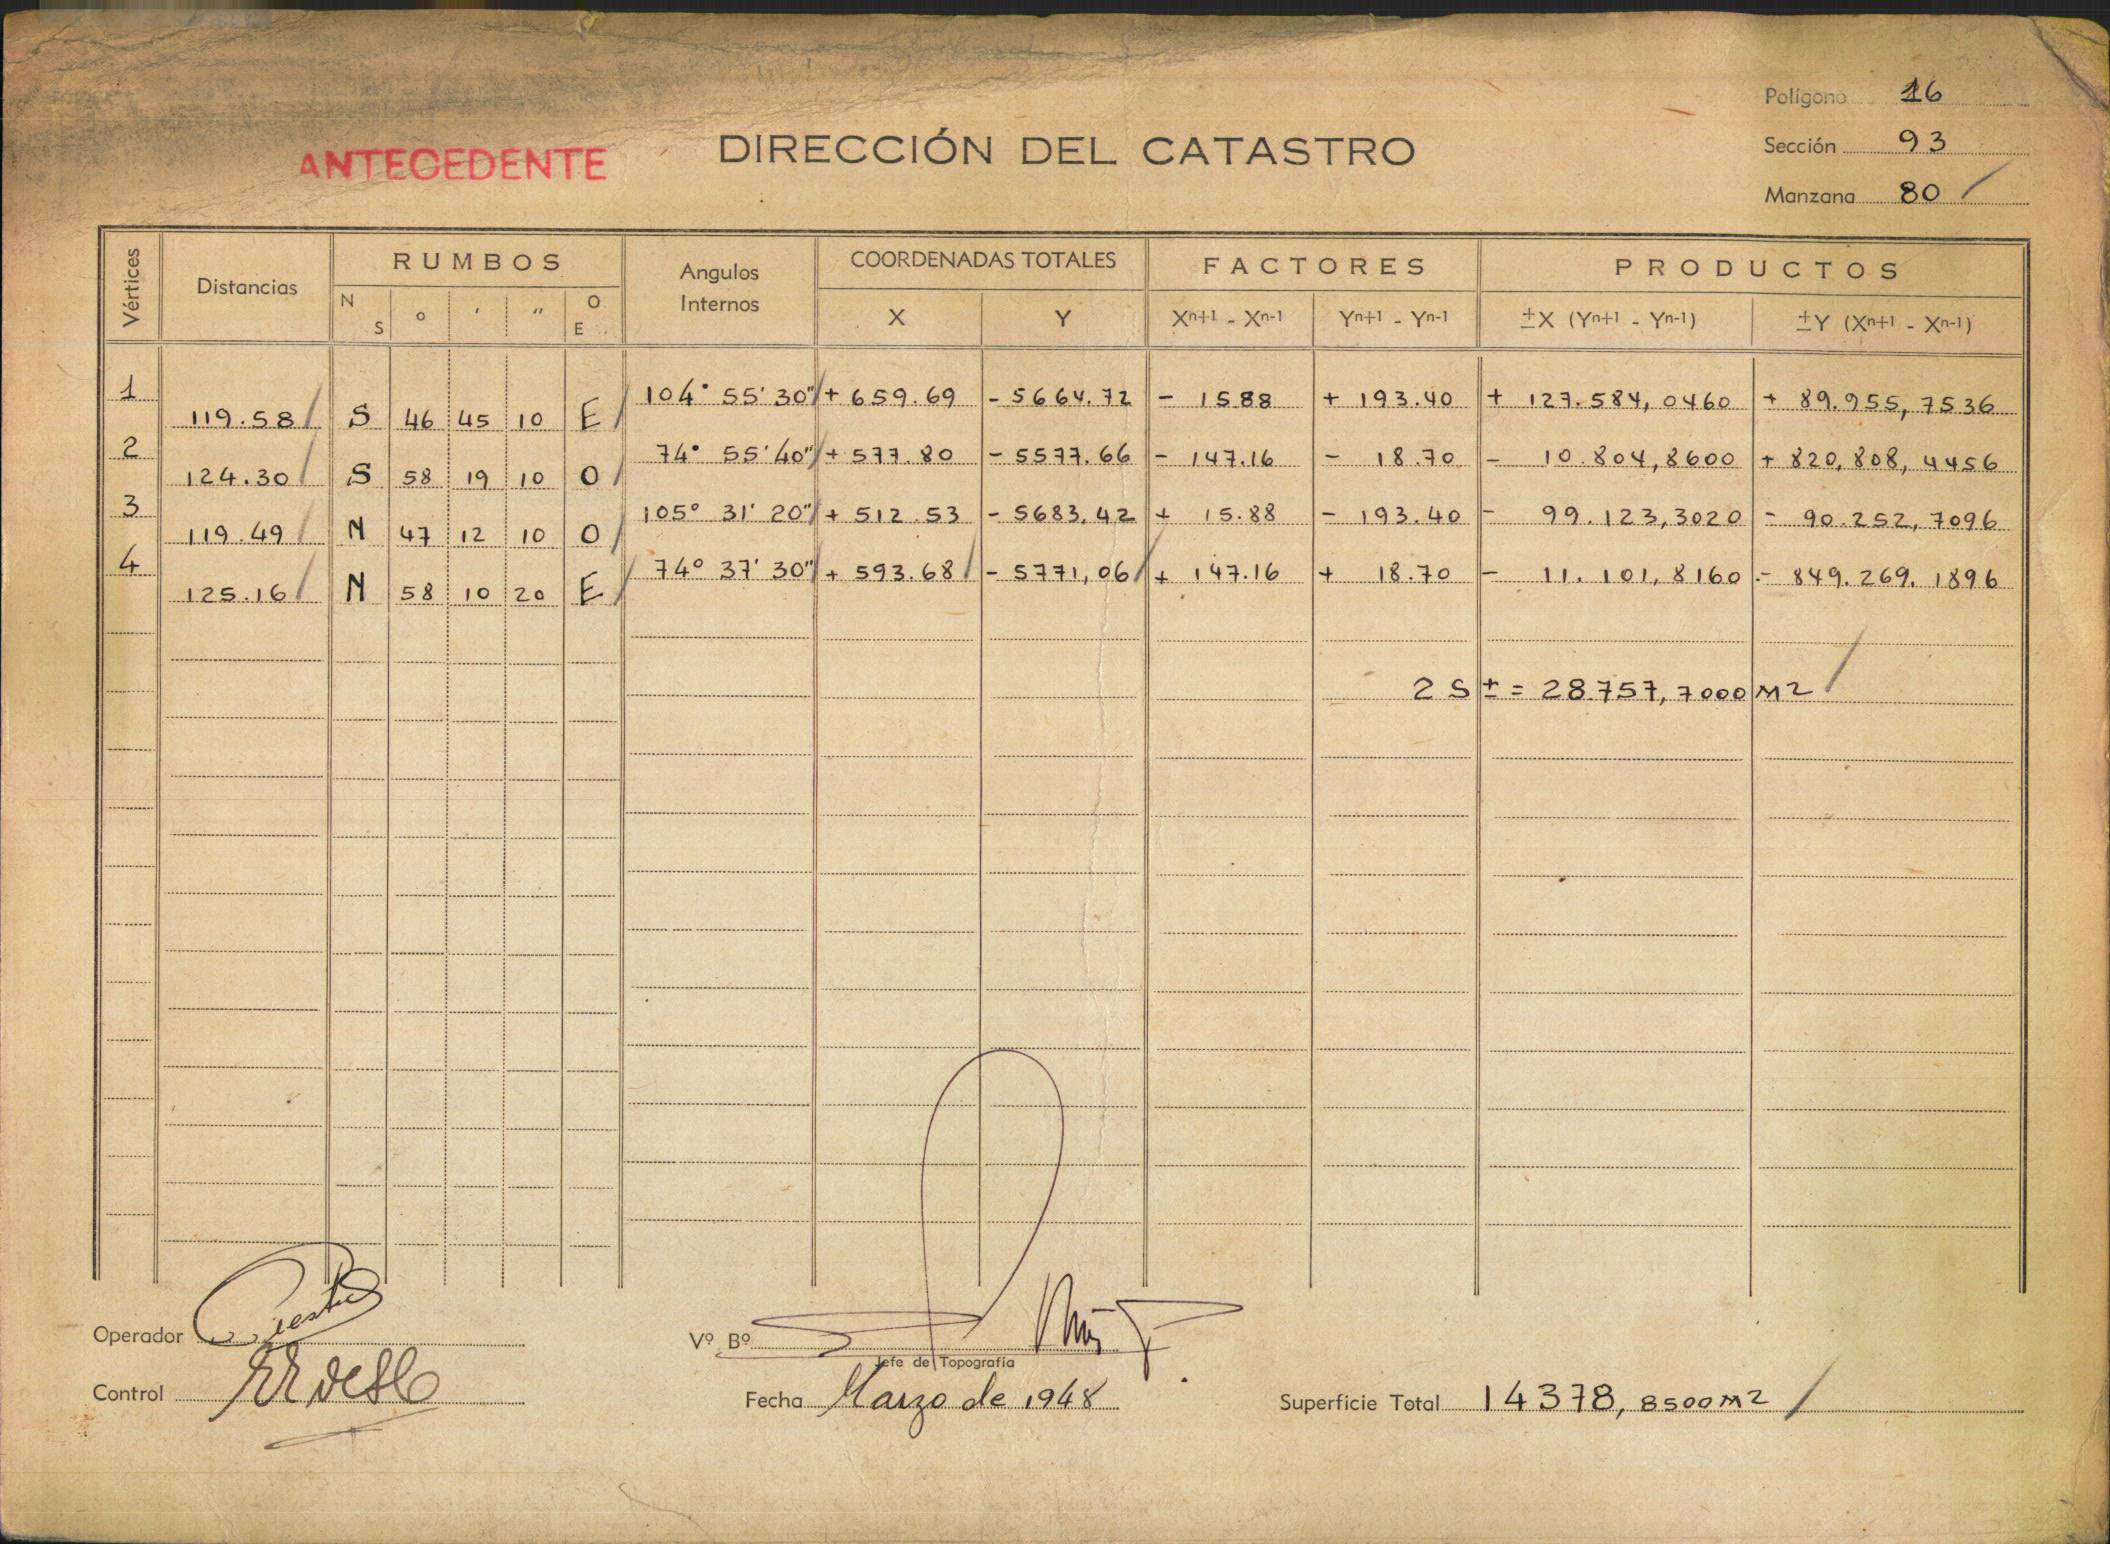 Polígono 16
ANTECEDENTE DIRECCIÓN DEL CATASTRO
Sección 93
Manzana 80 /
Vértices Distancias RUMBOS Angulos Internos COORDENADAS TOTALES FACTORES PRODUCTOS
N S o ' " O E X Y Xn+1 - Xn-1 Yn+1 - Yn-1 ±X (Yn+1 - Yn-1) ±Y (Xn+1 - Xn-1)
1 104° 55' 30" + 659.69 - 5664.72 - 15.88 + 193.40 + 127.584,0460 + 89.955,7536
119.58 S 46 45 10 E
2 74° 55' 40" + 577.80 - 5577.66 - 147.16 - 18.70 - 10.804,8600 + 820,808,4456
124.30 S 58 19 10 O
3 105° 31' 20" + 512.53 - 5683,42 + 15.88 - 193.40 - 99.123,3020 - 90.252,7096
119.49 N 47 12 10 O
4 74° 37' 30" + 593.68 - 5771,06 + 147.16 + 18.70 - 11.101,8160 - 849.269.1896
125.16 N 58 10 20 E
2 S ± = 28.757,7000 M2
Operador
Vº Bº
Jefe de Topografía
Control
Fecha Marzo de 1948
Superficie Total 14378,8500 M2